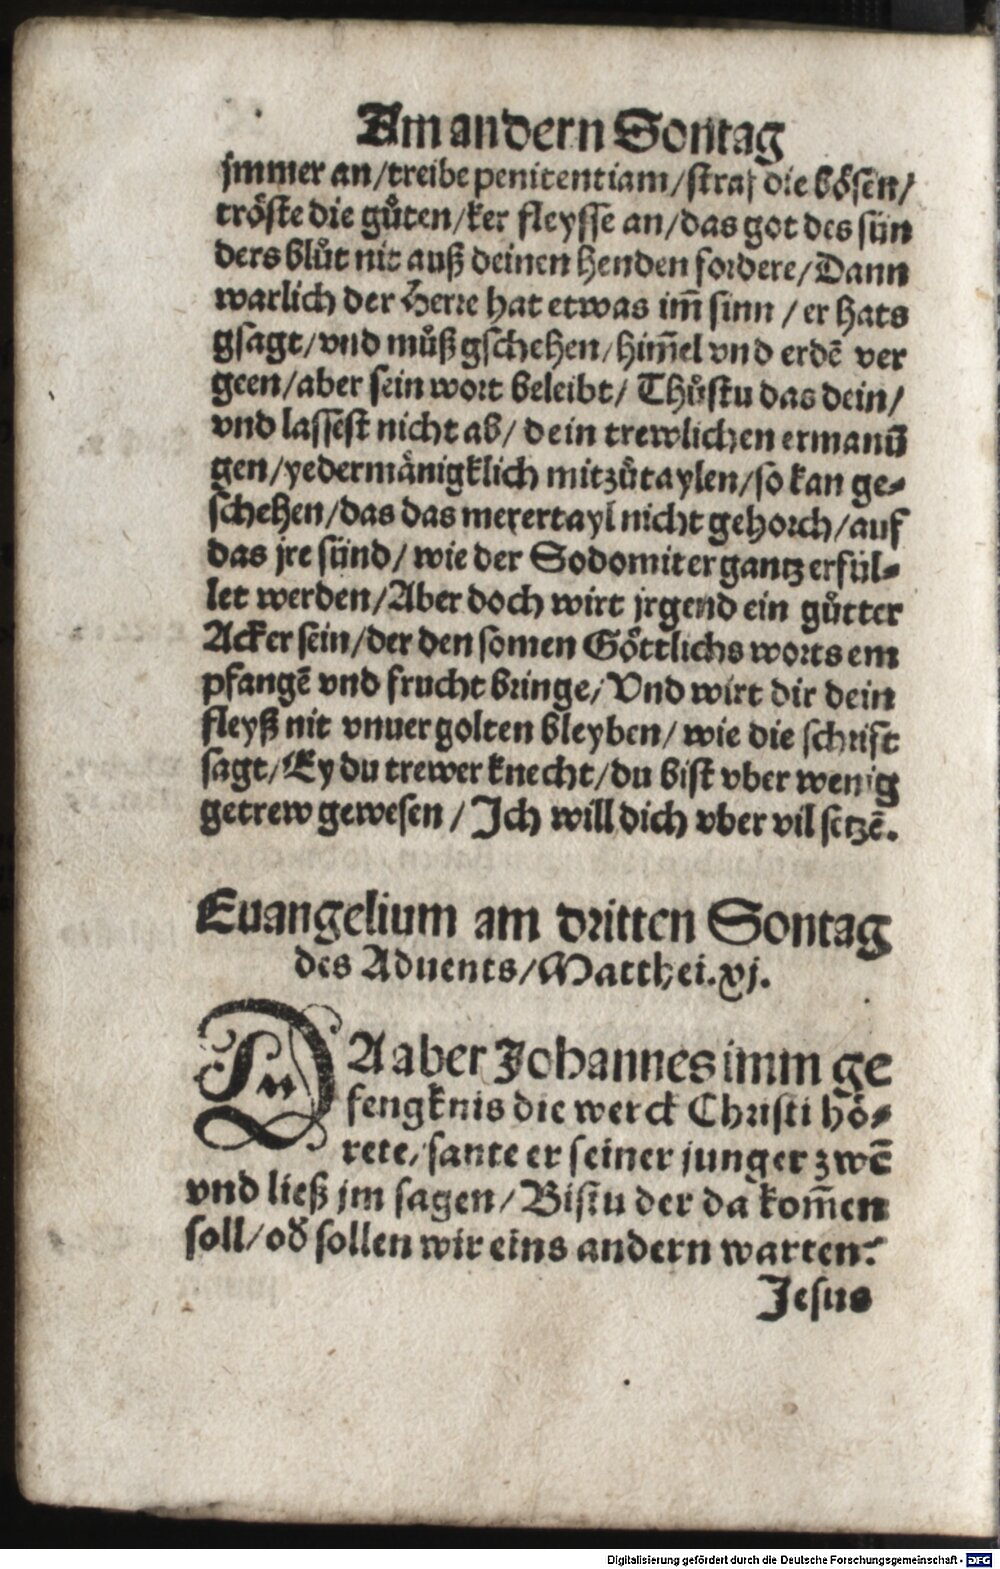 Am andern Sontag
jmmer an/treibe penitentiam/straf die bösen/
tröste die gůten/ker fleysse an/das got des sün
ders blůt nit auß deinen henden fordere/Dann
warlich der Herre hat etwas im̃ sinn/er hats
gsagt/vnd můß gschehen/him̃el vnd erdē ver
geen/aber sein wort beleibt/Thůstu das dein/
vnd lassest nicht ab/dein trewlichen ermanũ
gen/yedermänigklich mitzůtaylen/so kan ge⸗
schehen/das das merertayl nicht gehorch/auf
das jre sünd/wie der Sodomiter gantz erfül⸗
let werden/Aber doch wirt jrgend ein gůtter
Acker sein/der den somen Göttlichs worts em
pfangē vnd frucht bringe/Vnd wirt dir dein
fleyß nit vnuergolten bleyben/wie die schrift
sagt/Ey du trewer knecht/du bist vber wenig
getrew gewesen/Ich will dich vber vil setzē.
Euangelium am dritten Sontag
des Aduents/Matthei.xj.
DA aber Johannes imm ge
fengknis die werck Christi hö⸗
rete/sante er seiner junger zwē
vnd ließ jm sagen/Bistu der da kom̃en
soll/od̕ sollen wir eins andern warten?
Jesus
Digitalisierung gefördert durch die Deutsche Forschungsgemeinschaft - DFG